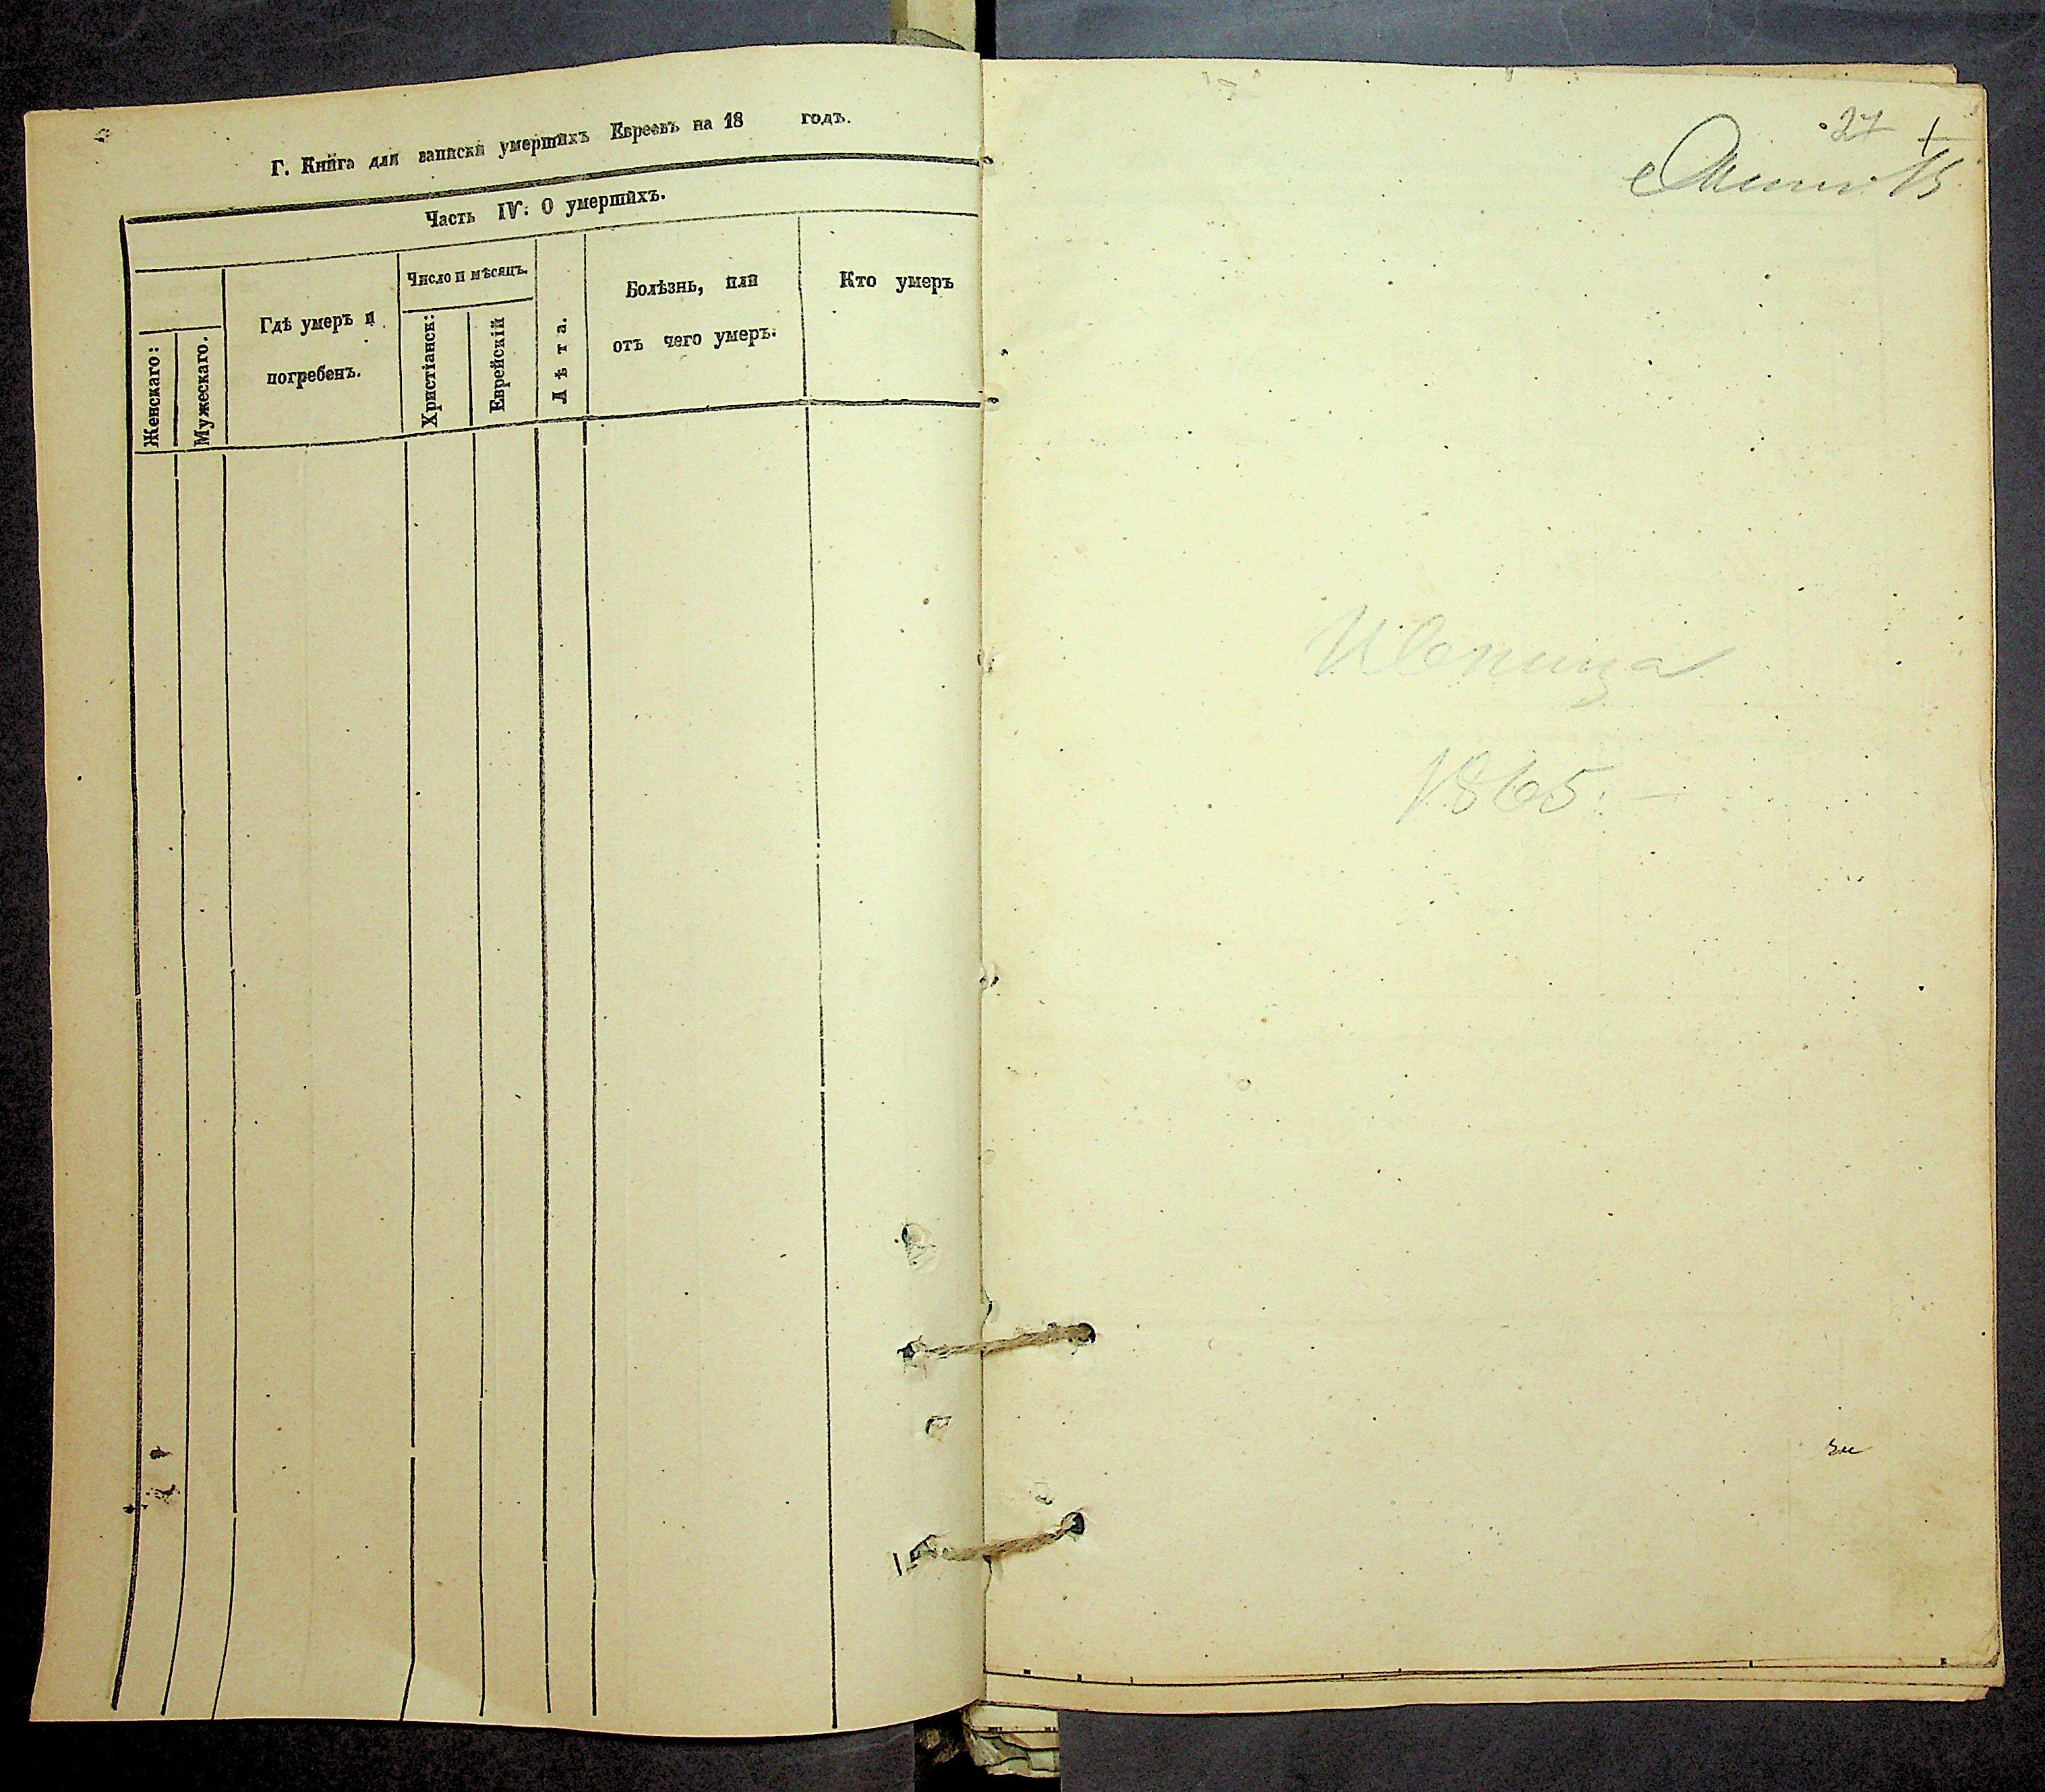 Г. Книга для записки умершихъ Евреевъ на 18 годъ.
Часть IV: О умершихъ.
Женскаго:
Мужескаго.
Гдѣ умеръ и
погребенъ.
Число и мѣсяцъ.
Христіанск:
Еврейскій
Лѣта.
Болѣзнь, или
отъ чего умеръ.
Кто умеръ
27
15
1865. —